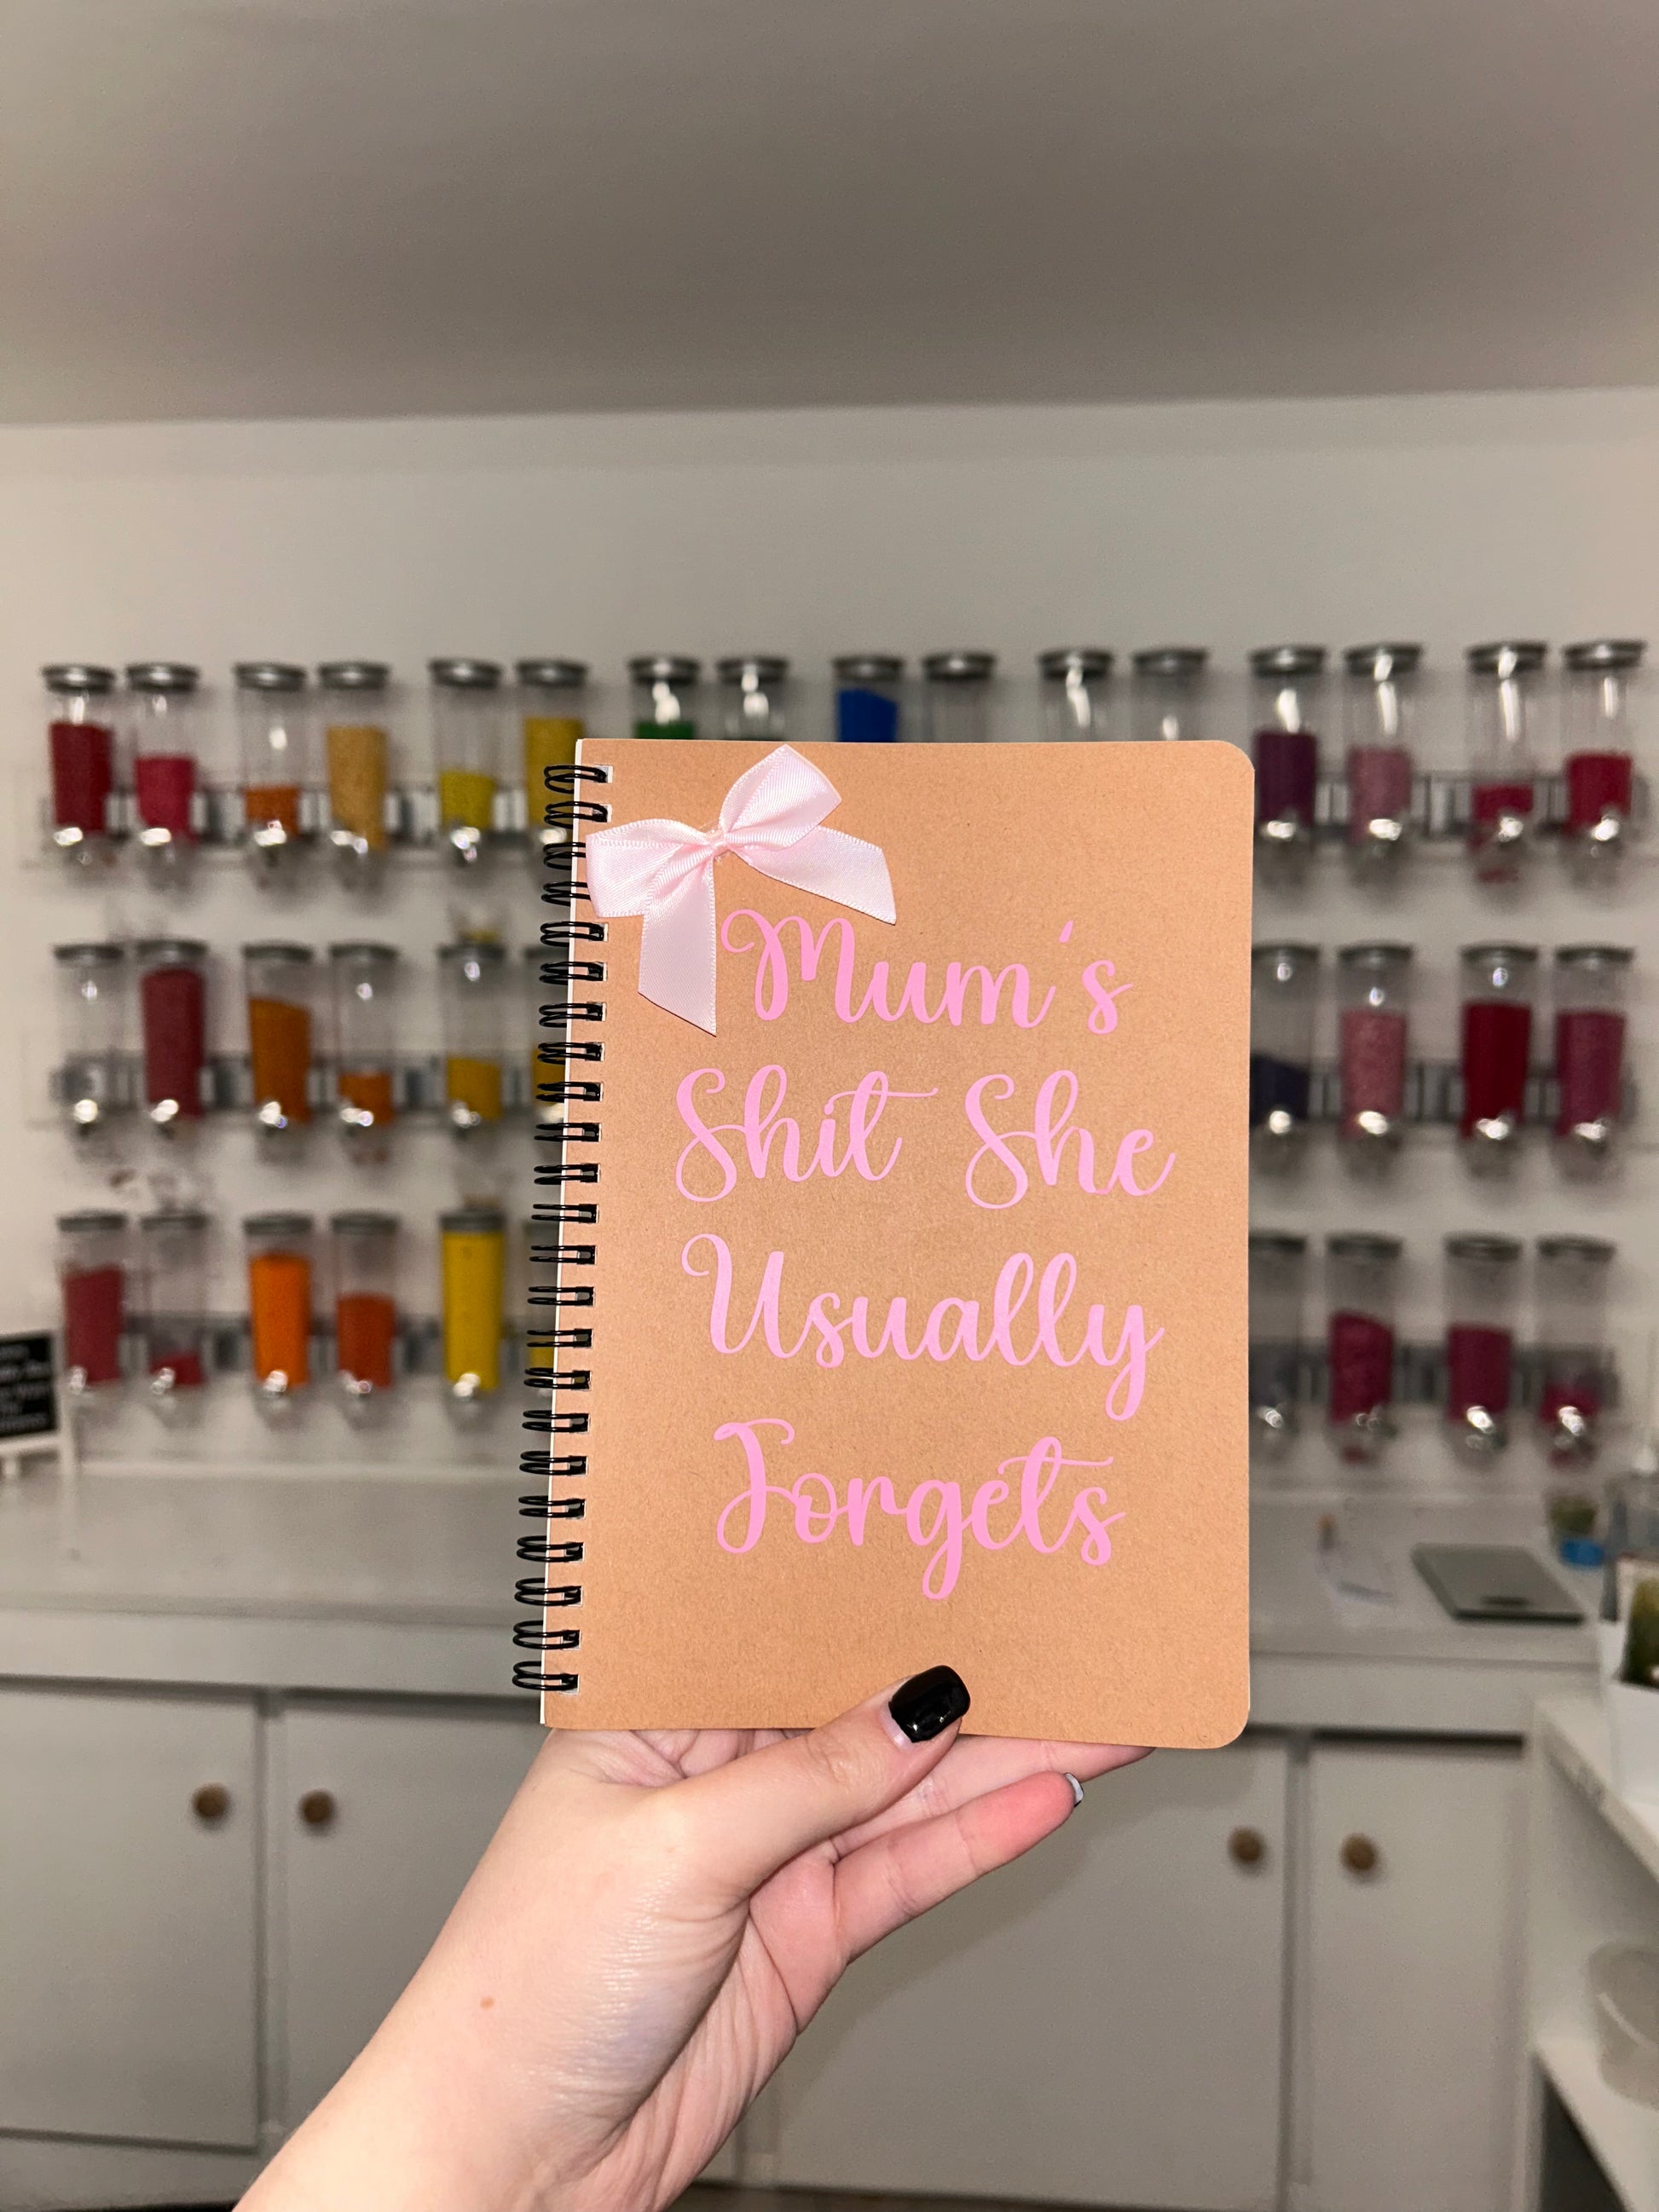 Mum's
Shit She
Usually
Forgets